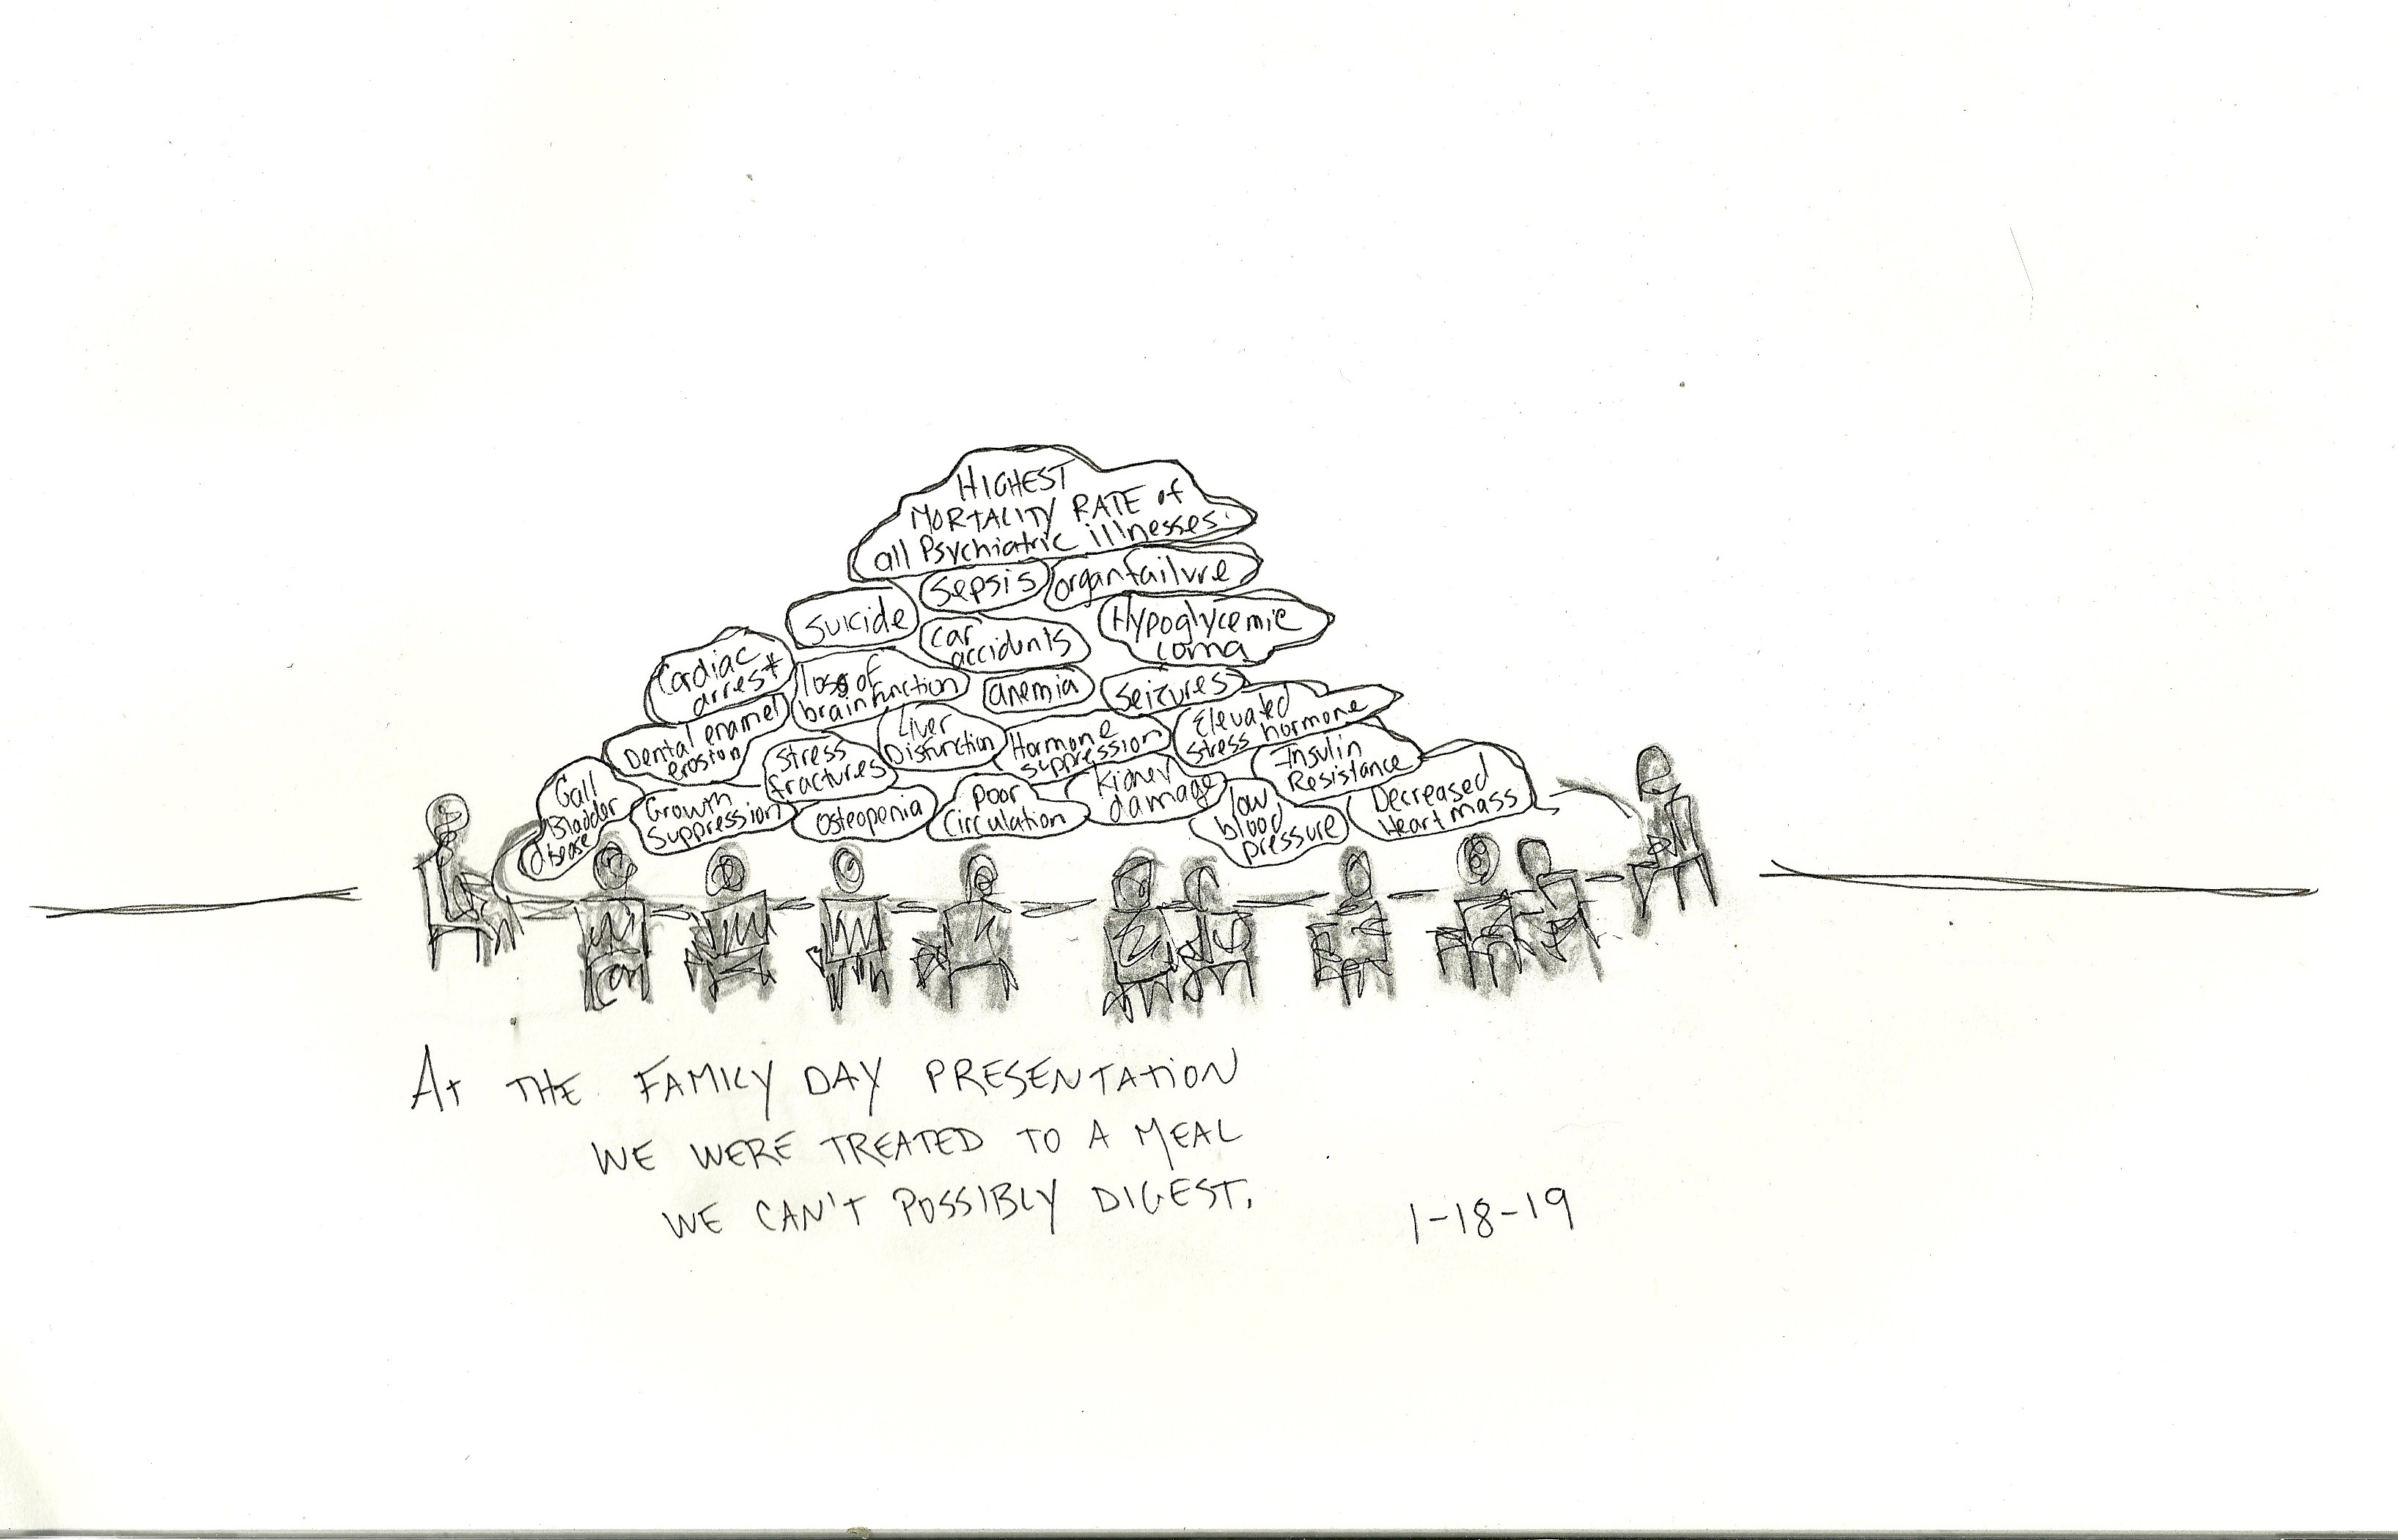 HIGHEST
MORTALITY RATE of
all Psychiatric illnesses.
Sepsis
organ failure
Suicide
car
accidents
Hypoglycemic
coma
Cardiac
arrest
loss of
brain function
anemia
Seizures
Dental enamel
erosion
Stress
fractures
Liver
Disfunction
Hormone
suppression
Elevated
stress hormone
Insulin
Resistance
Gall
Bladder
disease
Growth
Suppression
Osteopenia
Poor
Circulation
Kidney
damage
low
blood
pressure
Decreased
Heart mass
At THE FAMILY DAY PRESENTATiON
WE WERE TREATED TO A MEAL
WE CAN'T POSSIBLY DIGEST.
1-18-19